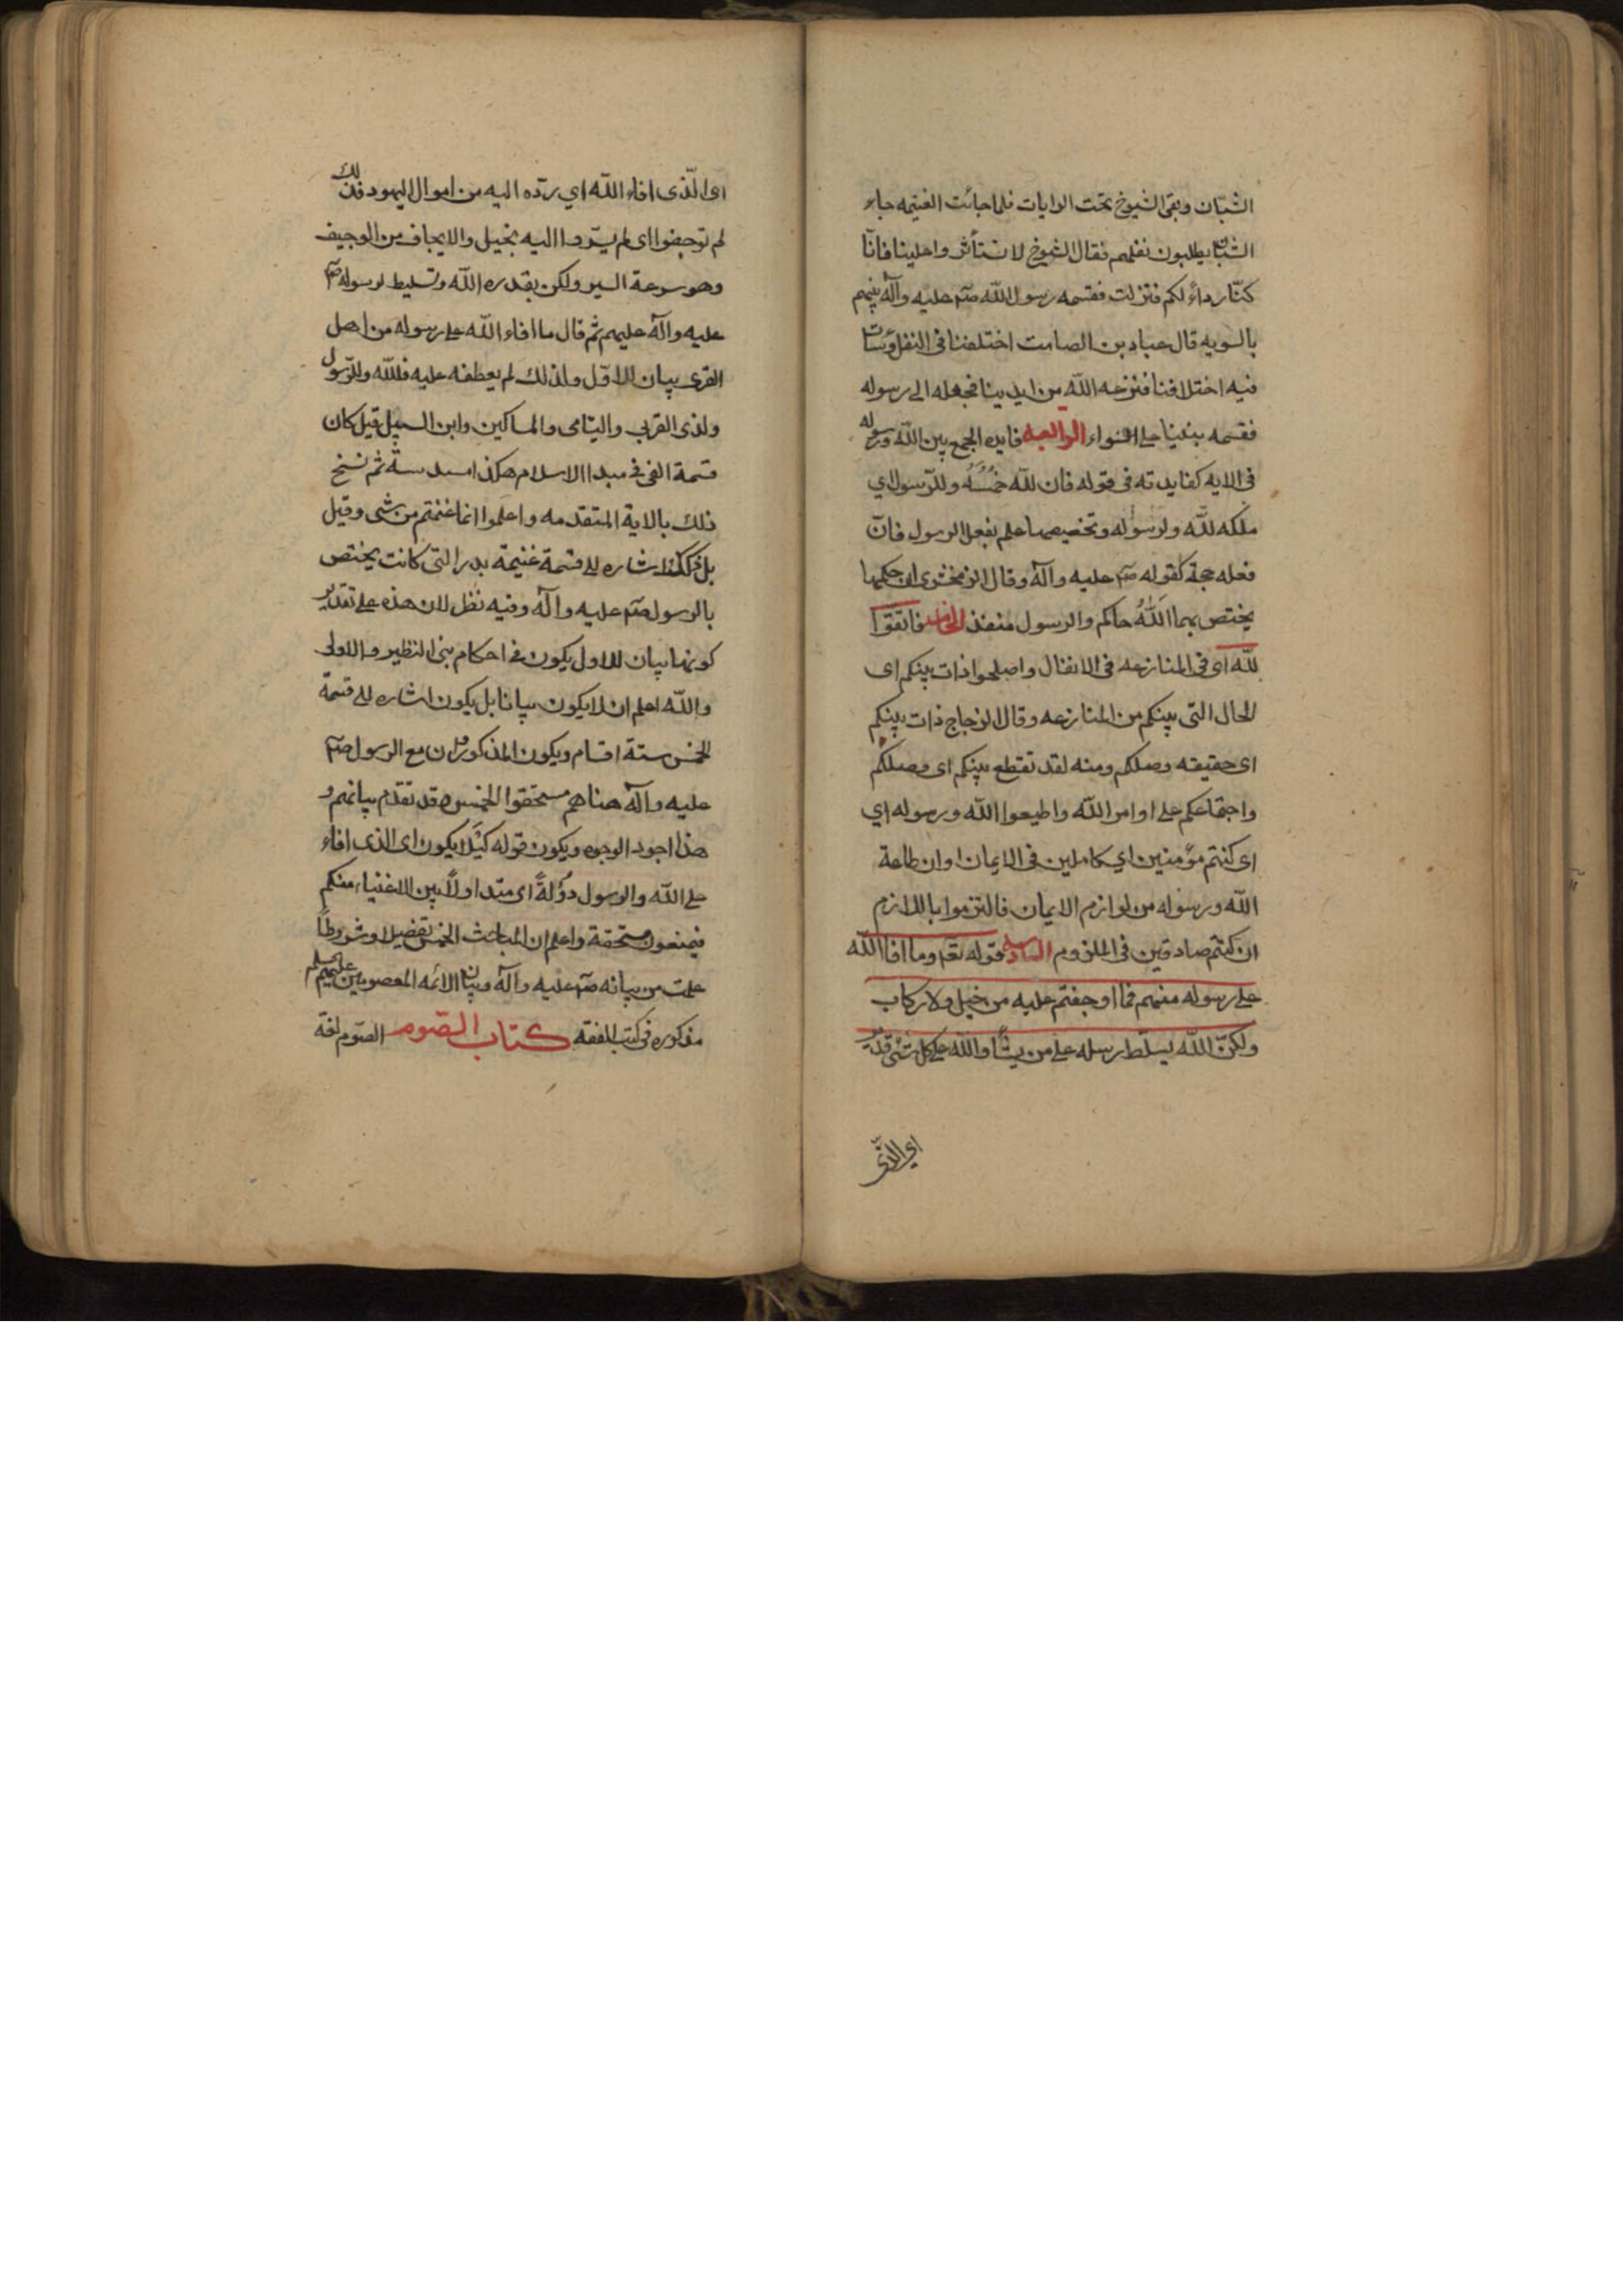 الشبّان وبقى الشيوخ تحت الرايات فلما جائت الغنيمه جاء
الشبّان يطلبون نفلهم فقال الشيوخ لا تستأثروا علينا فانّا
كنّا رداءً لكم فنزلت فقسمه رسول الله صم عليه وآله بينهم
بالسويه قال عباد بن الصامت اختلفنا فى النفل وسائت
فيه اختلافنا فنزعه الله من ايدينا فجعله الى رسوله
فقسمه بيننا على السواء الرابعه فايده الجمع بين الله ورسوله
فى الايه كفايدته فى قوله فان لله خُمُسَهُ وللرّسول اي
ملكه لله ولرسوله وتخصيصها علم بفعل الرسول فانّ
فعله حجة كقوله صم عليه وآله وقال الزمخشرى ان حكمها
يختص بهما اَللهُ حاكم والرسول منفذ الخامسه فاتقوا
لله اى فى المنازعه فى الانفال واصلحوا ذات بينكم اى
الحال التى بينكم من المنازعه وقال الزجاج ذات بينكم
اى حقيقه وصلكم ومنه لقد تقطع بينكم اى وصلكم
واجتماعكم على اوامر الله واطيعوا الله ورسوله اي
اى كنتم مؤمنين اي كاملين فى الايمان او ان طاعة
الله ورسوله من لوازم الايمان فالتزموا باللازم
ان كنتم صادقين فى الملزوم السادسه قوله تعم وما افا الله
على رسوله منهم فما اوجفتم عليه من خيل ولا ركاب
ولكنّ الله يسلّط رسله على من يشأ والله على كل شئ قدير
اي الذّى
اى الّذى افاء الله اي ردّه اليه من اموال اليهود فذلك
لم توجفوا اى لم يسّروا اليه بخيل والايجاف من الوجيف
وهو سرعة السير ولكن بقدره الله وتسليط لرسوله صم
عليه وآله عليهم ثم قال ما افاء الله على رسوله من اهل
القرى بيان للاوّل ولذلك لم يعطفه عليه فلله وللرّسول
ولذى القربى واليتامى والمساكين وابن السبيل قيل كان
قسمة الفى فى مبدا الاسلام هكذا مسدسة ثم نسخ
ذلك بالاية المتقدمه واعلموا انما غنمتم من شى وقيل
بل ذلك اشاره الى قسمة غنيمة بدر التى كانت يختص
بالرسول صم عليه وآله وفيه نظر لان هذه على تقدير
كونها بيان للاول يكون فى احكام بنى النظير والاولى
والله اعلم ان لا يكون بيانا بل يكون اشاره الى قسمة
الخمس ستة اقسام ويكون المذكورون مع الرسول صم
عليه وآله هنا هم مستحقوا الخمس وقد تقدم بيانهم و
هذا اجود الوجوه ويكون قوله كيَلا يكون اى الذى افاء
على الله والرسول دُولةً اى متداولاً بين الاغنياء منكم
فيمنعون مستحقة واعلم ان المباحث الخمس تفصيلا وشروطاً
علمت من بيانه صم عليه وآله وبيان الائمه المعصومين عليهم السلم
مذكوره فى كتب الفقه كتاب الصّوم الصّوم لغة